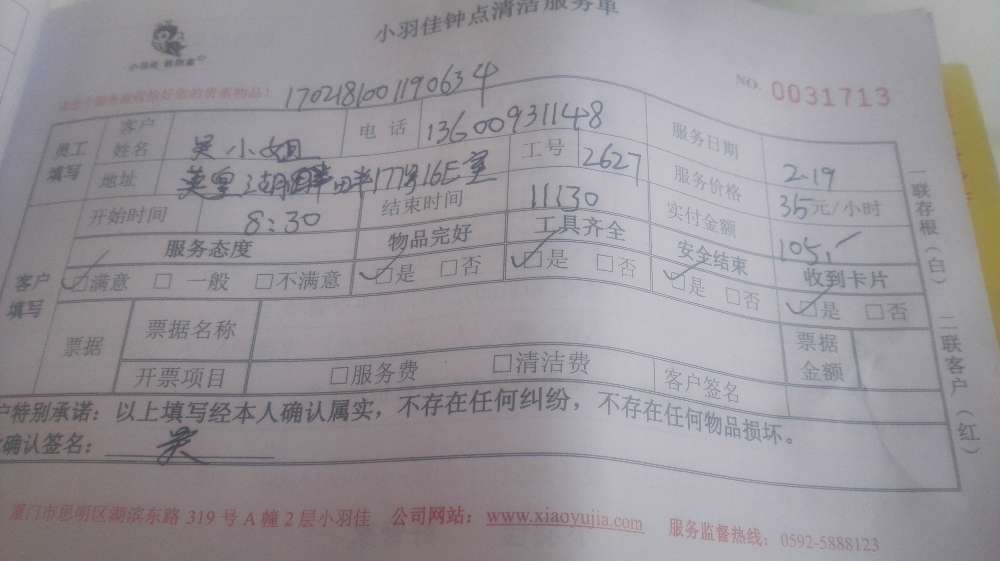 小羽佳钟点清洁服务单
小羽佳 帮您富
NO. 0031713
17021810011190634
员工填写 客户姓名 吴小姐 电话 13600931148 服务日期 2.19
地址 英皇湖畔畔177号16E室 工号 2627 服务价格 35元/小时
开始时间 8:30 结束时间 11:30 实付金额 105.-
客户填写 服务态度 物品完好 工具齐全 安全结束 收到卡片
☑满意 □一般 □不满意 ☑是 □否 ☑是 □否 ☑是 □否 ☑是 □否
票据 票据名称 票据金额
开票项目 □服务费 □清洁费 客户签名
户特别承诺：以上填写经本人确认属实，不存在任何纠纷，不存在任何物品损坏。
确认签名： 吴
厦门市思明区湖滨东路 319 号 A 幢 2 层小羽佳 公司网站：www.xiaoyujia.com 服务监督热线：0592-5888123
一联存根（白） 二联客户（红）